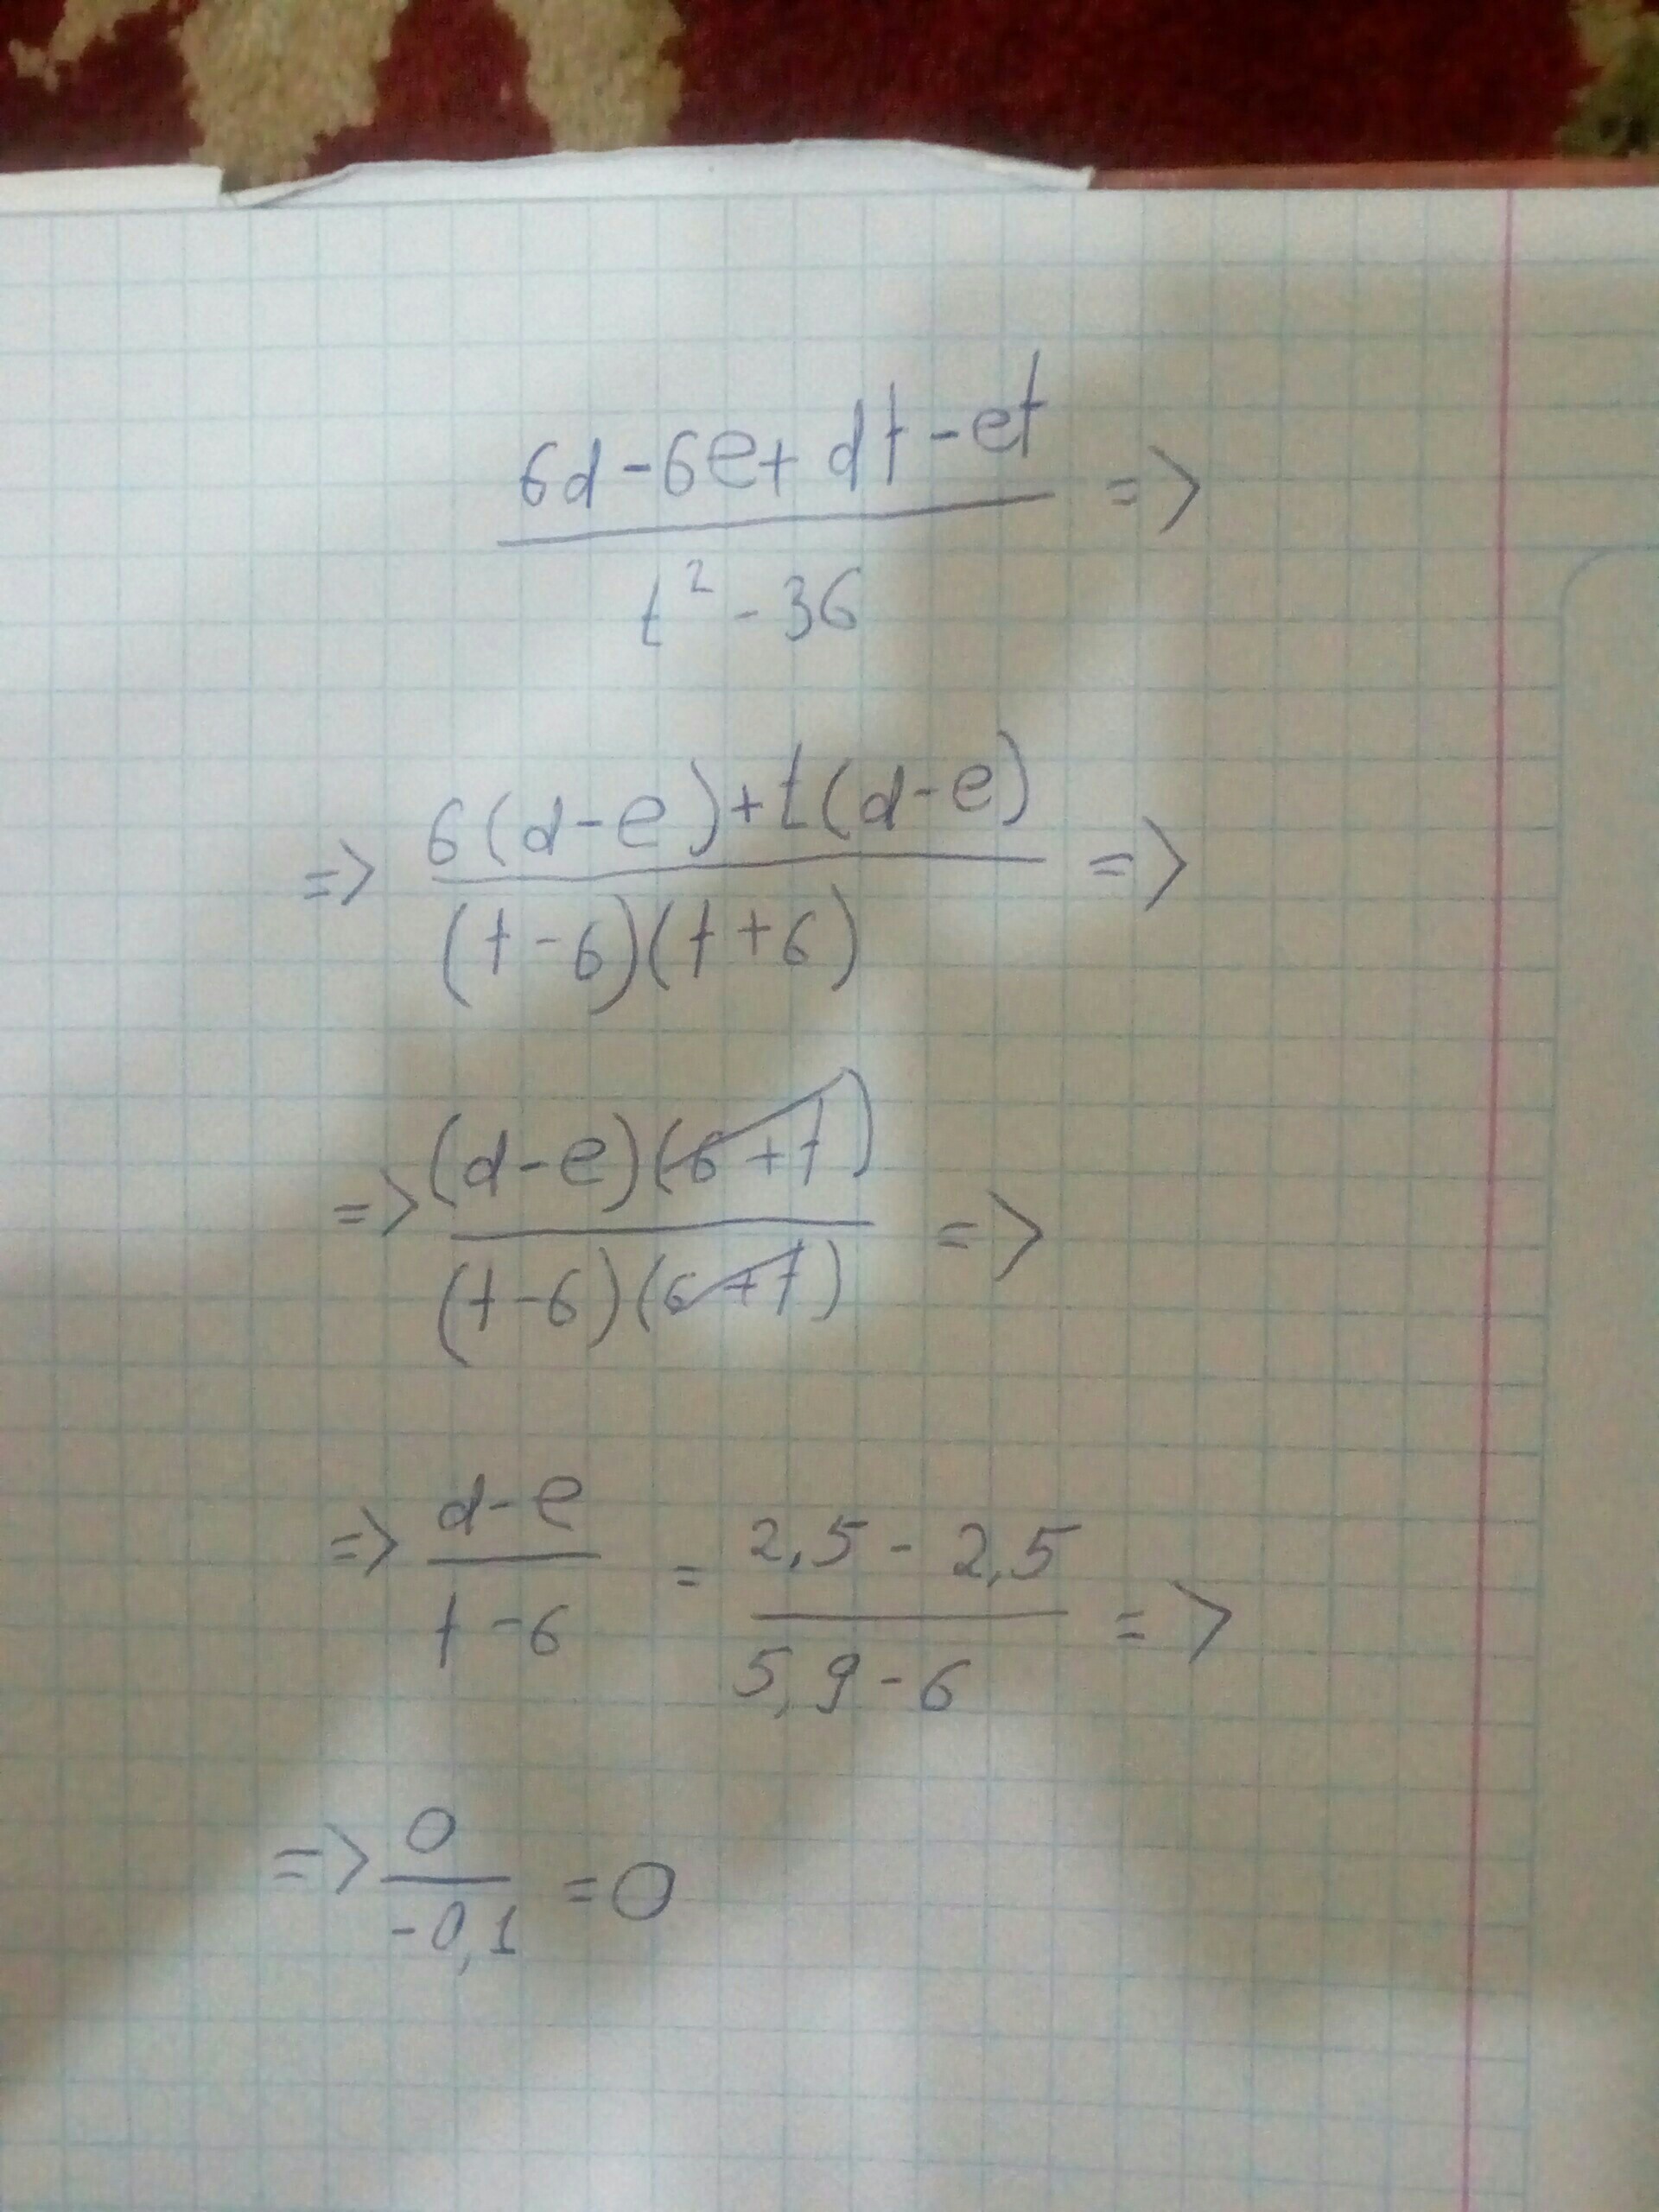 6d-6e+dt-et =>
t²-36
=> 6(d-e)+t(d-e) =>
(t-6)(t+6)
=> (d-e)(6+t) =>
(t-6)(6+t)
=> d-e = 2,5-2,5 =>
t-6 5,9-6
=> 0 =0
-0,1